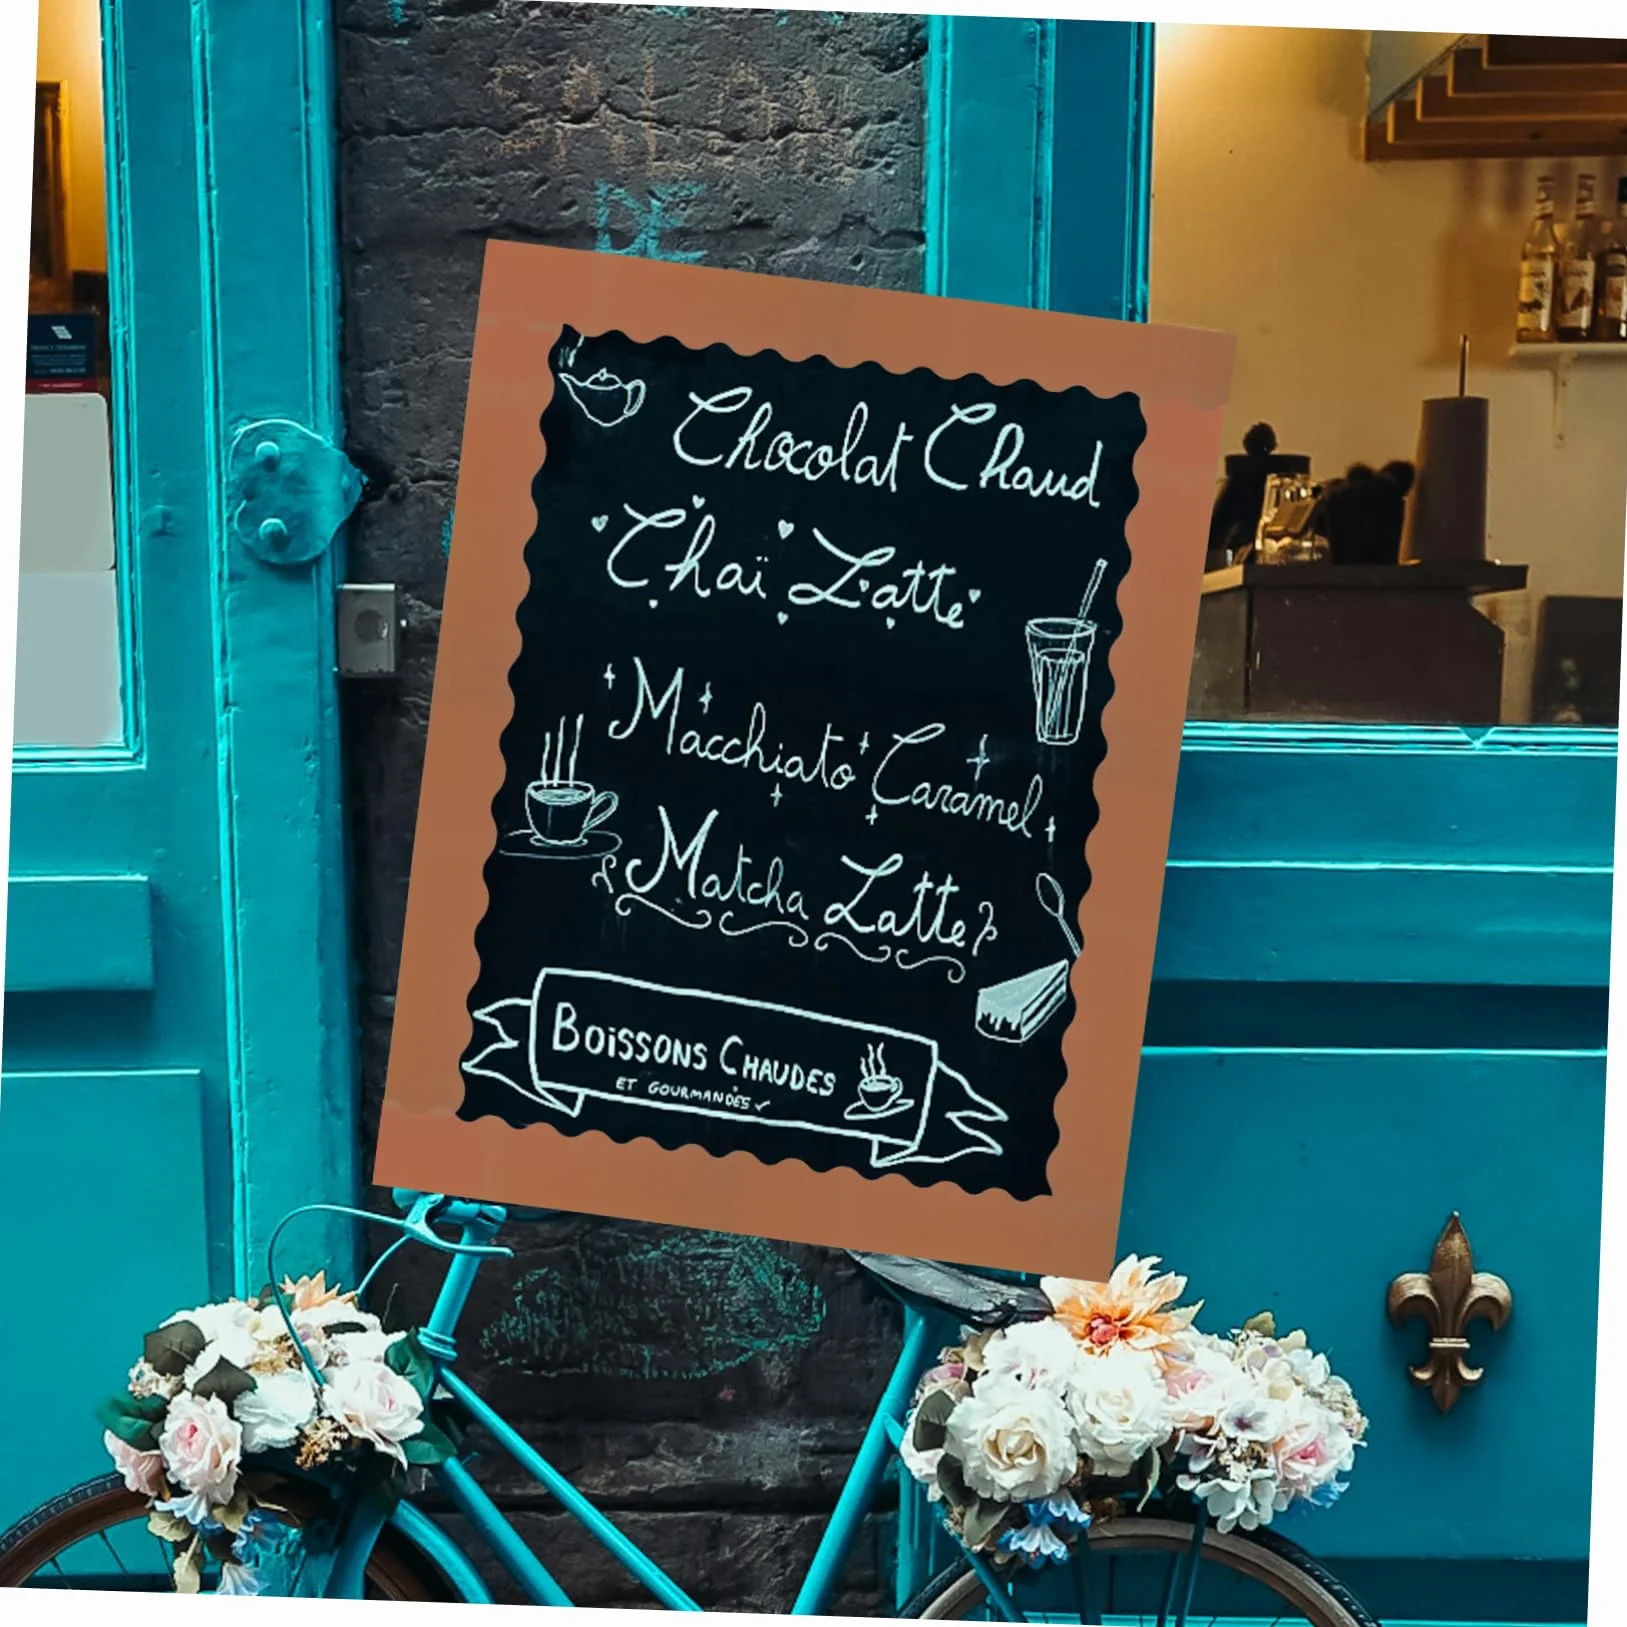 SALON
DE
Chocolat Chaud
Chaï Latte
Macchiato Caramel
Matcha Latte
BOISSONS CHAUDES
ET GOURMANDES